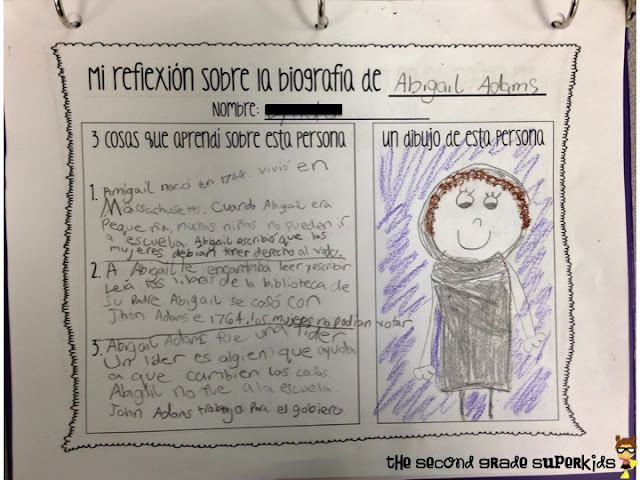 Mi reflexión sobre la biografia de Abigail Adams
Nombre:
3 cosas que aprendí sobre esta persona
un dibujo de esta persona
1. Amigail nacó en 1744. vivió en
Massachusetts. Cuando Abigail era
Pequeña, muchas niñas no pueden ir
a escuela. Abigail escribió que las
mujeres debian tener derecho al voto.
2. A Abigail le encantaba leer yescribir
Leía los libros de la biblioteca de
su Padre Abigail se casó con
Jhon Adams e 1764. las mujeres no podian votar
3. Abigail Adams fue una lider
Un lider es algien que ayuda
a que cambien las cosas
Abigail no fue ala escuela
John Adams trabajo Para el gobiero
the second grade superkids